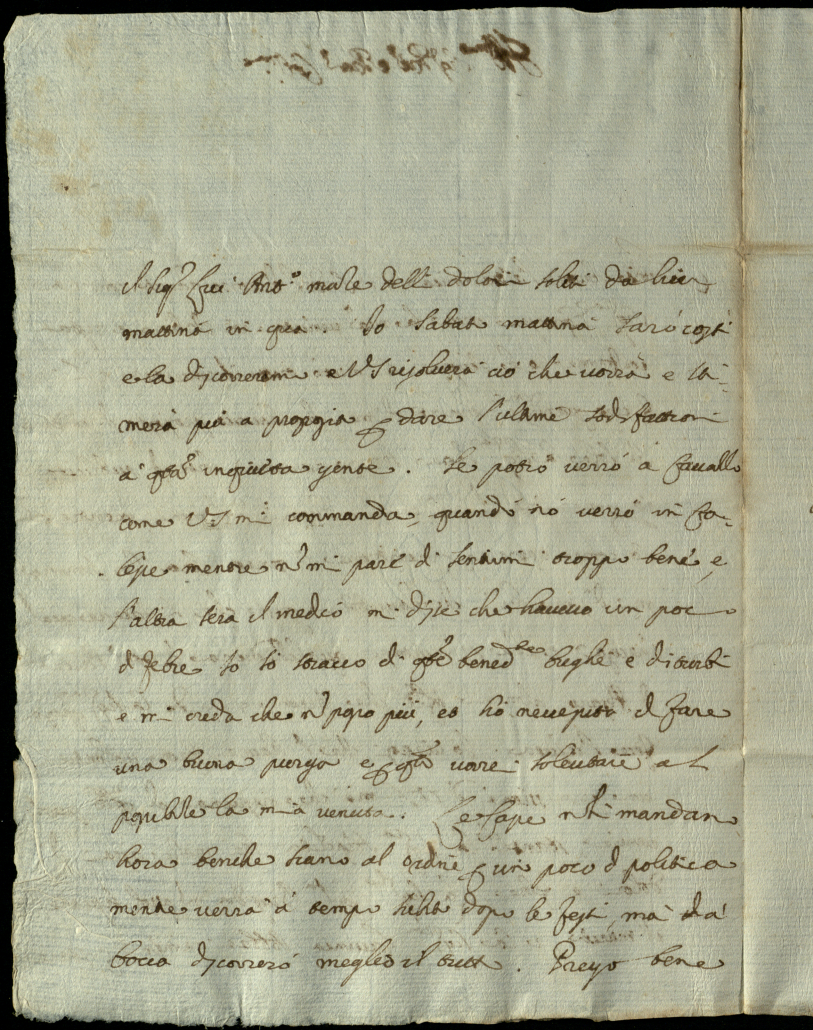 Il Sig.r Ant.o male dell dolori soliti da hier
mattina in qua. Io sabato mattina sarò costì
e la discorreremo e VS risolverà ciò che vorrà e sti-
merà più a proposito dare l'ultime sodisfationi
a q.ta inquieta gente. Se potrò verrò a cavallo
come VS mi commanda, quando nò verrò in ca-
lesse mentre n mi pare di sentirmi troppo bene, e
l'altra sera il medico mi disse che havevo un poco
di febre Io sò stracco di q.te bened.te brighe e disturbi
e mi creda che n posso più, et hò necessità di fare
una buona purga e q.to vorrei sollevitare al
possibile la mia venuta. Le casse n li mandan
hora benche siano al ordine un poco di politica
mente verrà à tempo subito dopo le feste, ma da
bocca discorrerò meglio il tutto. Prego bene